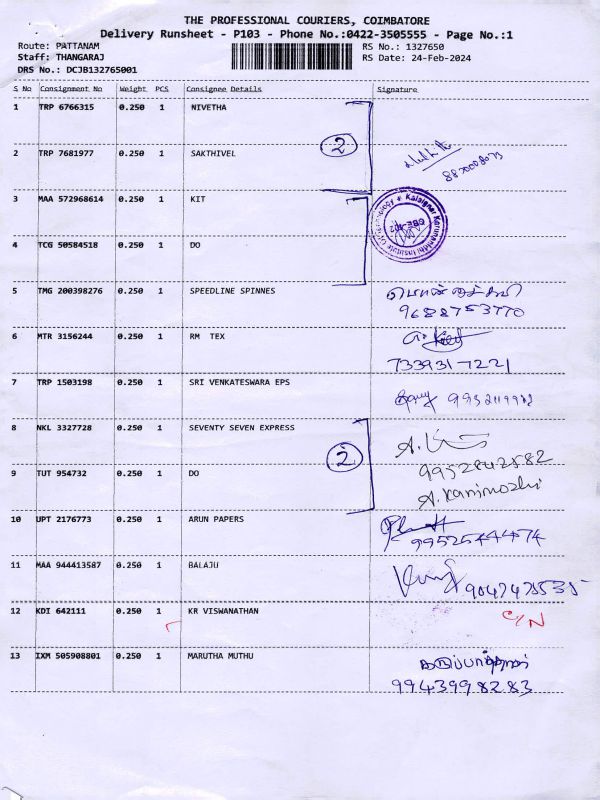 THE PROFESSIONAL COURIERS, COIMBATORE
Delivery Runsheet - P103 - Phone No.:0422-3505555 - Page No.:1
Route: PATTANAM RS No.: 1327650
Staff: THANGARAJ RS Date: 24-Feb-2024
DRS No.: DCJB132765001
S No Consignment No Weight PCS Consignee Details Signature
1 TRP 6766315 0.250 1 NIVETHA
2
2 TRP 7681977 0.250 1 SAKTHIVEL
3 MAA 572968614 0.250 1 KIT
4 TCG 50584518 0.250 1 DO
5 TMG 200398276 0.250 1 SPEEDLINE SPINNES
9688753770
6 MTR 3156244 0.250 1 RM TEX
7339317221
7 TRP 1503198 0.250 1 SRI VENKATESWARA EPS
8 NKL 3327728 0.250 1 SEVENTY SEVEN EXPRESS
2
9952842582
9 TUT 954732 0.250 1 DO
A. Kanimozhi
10 UPT 2176773 0.250 1 ARUN PAPERS
9952544474
11 MAA 944413587 0.250 1 BALAJU
9047475535
12 KDI 642111 0.250 1 KR VISWANATHAN C/N
13 IXM 505908801 0.250 1 MARUTHA MUTHU
9943998283